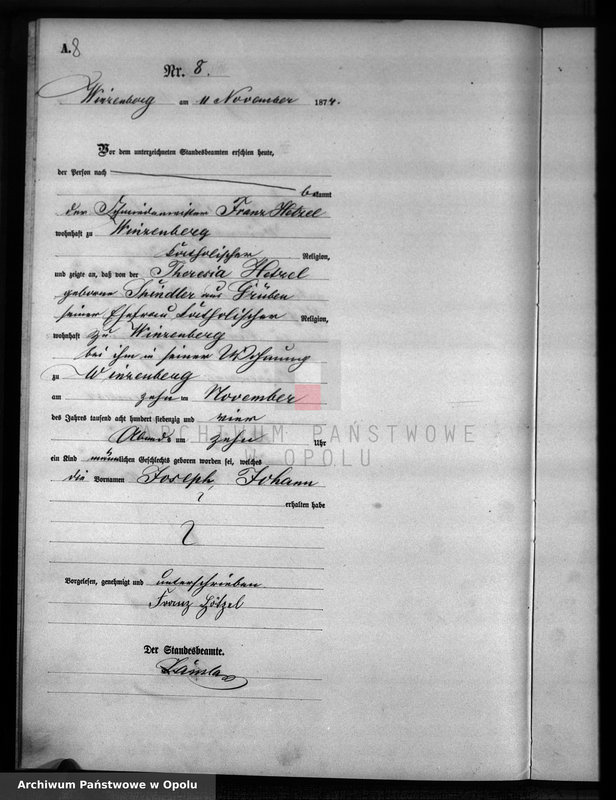 A. 8
Nr. 8.
Winzenberg am 11 November 1874.
Vor dem unterzeichneten Standesbeamten erschien heute,
der Person nach
bekannt
der Schmiedemeister Franz Hetzel
wohnhaft zu Winzenberg
katholischer Religion,
und zeigte an, daß von der Theresia Hetzel
geborne Spindler aus Grüben
seiner Ehefrau katholischer Religion,
wohnhaft zu Winzenberg
bei ihm in seiner Wohnung
zu Winzenberg
am zehn ten November
des Jahres tausend acht hundert siebenzig und vier
Abends um zehn Uhr
ein Kind männlichen Geschlechts geboren worden sei, welches
die Vornamen Joseph, Johann
erhalten habe
Vorgelesen, genehmigt und unterschrieben
Franz Hötzel
Der Standesbeamte.
ARCHIWUM PAŃSTWOWE
W OPOLU
Archiwum Państwowe w Opolu